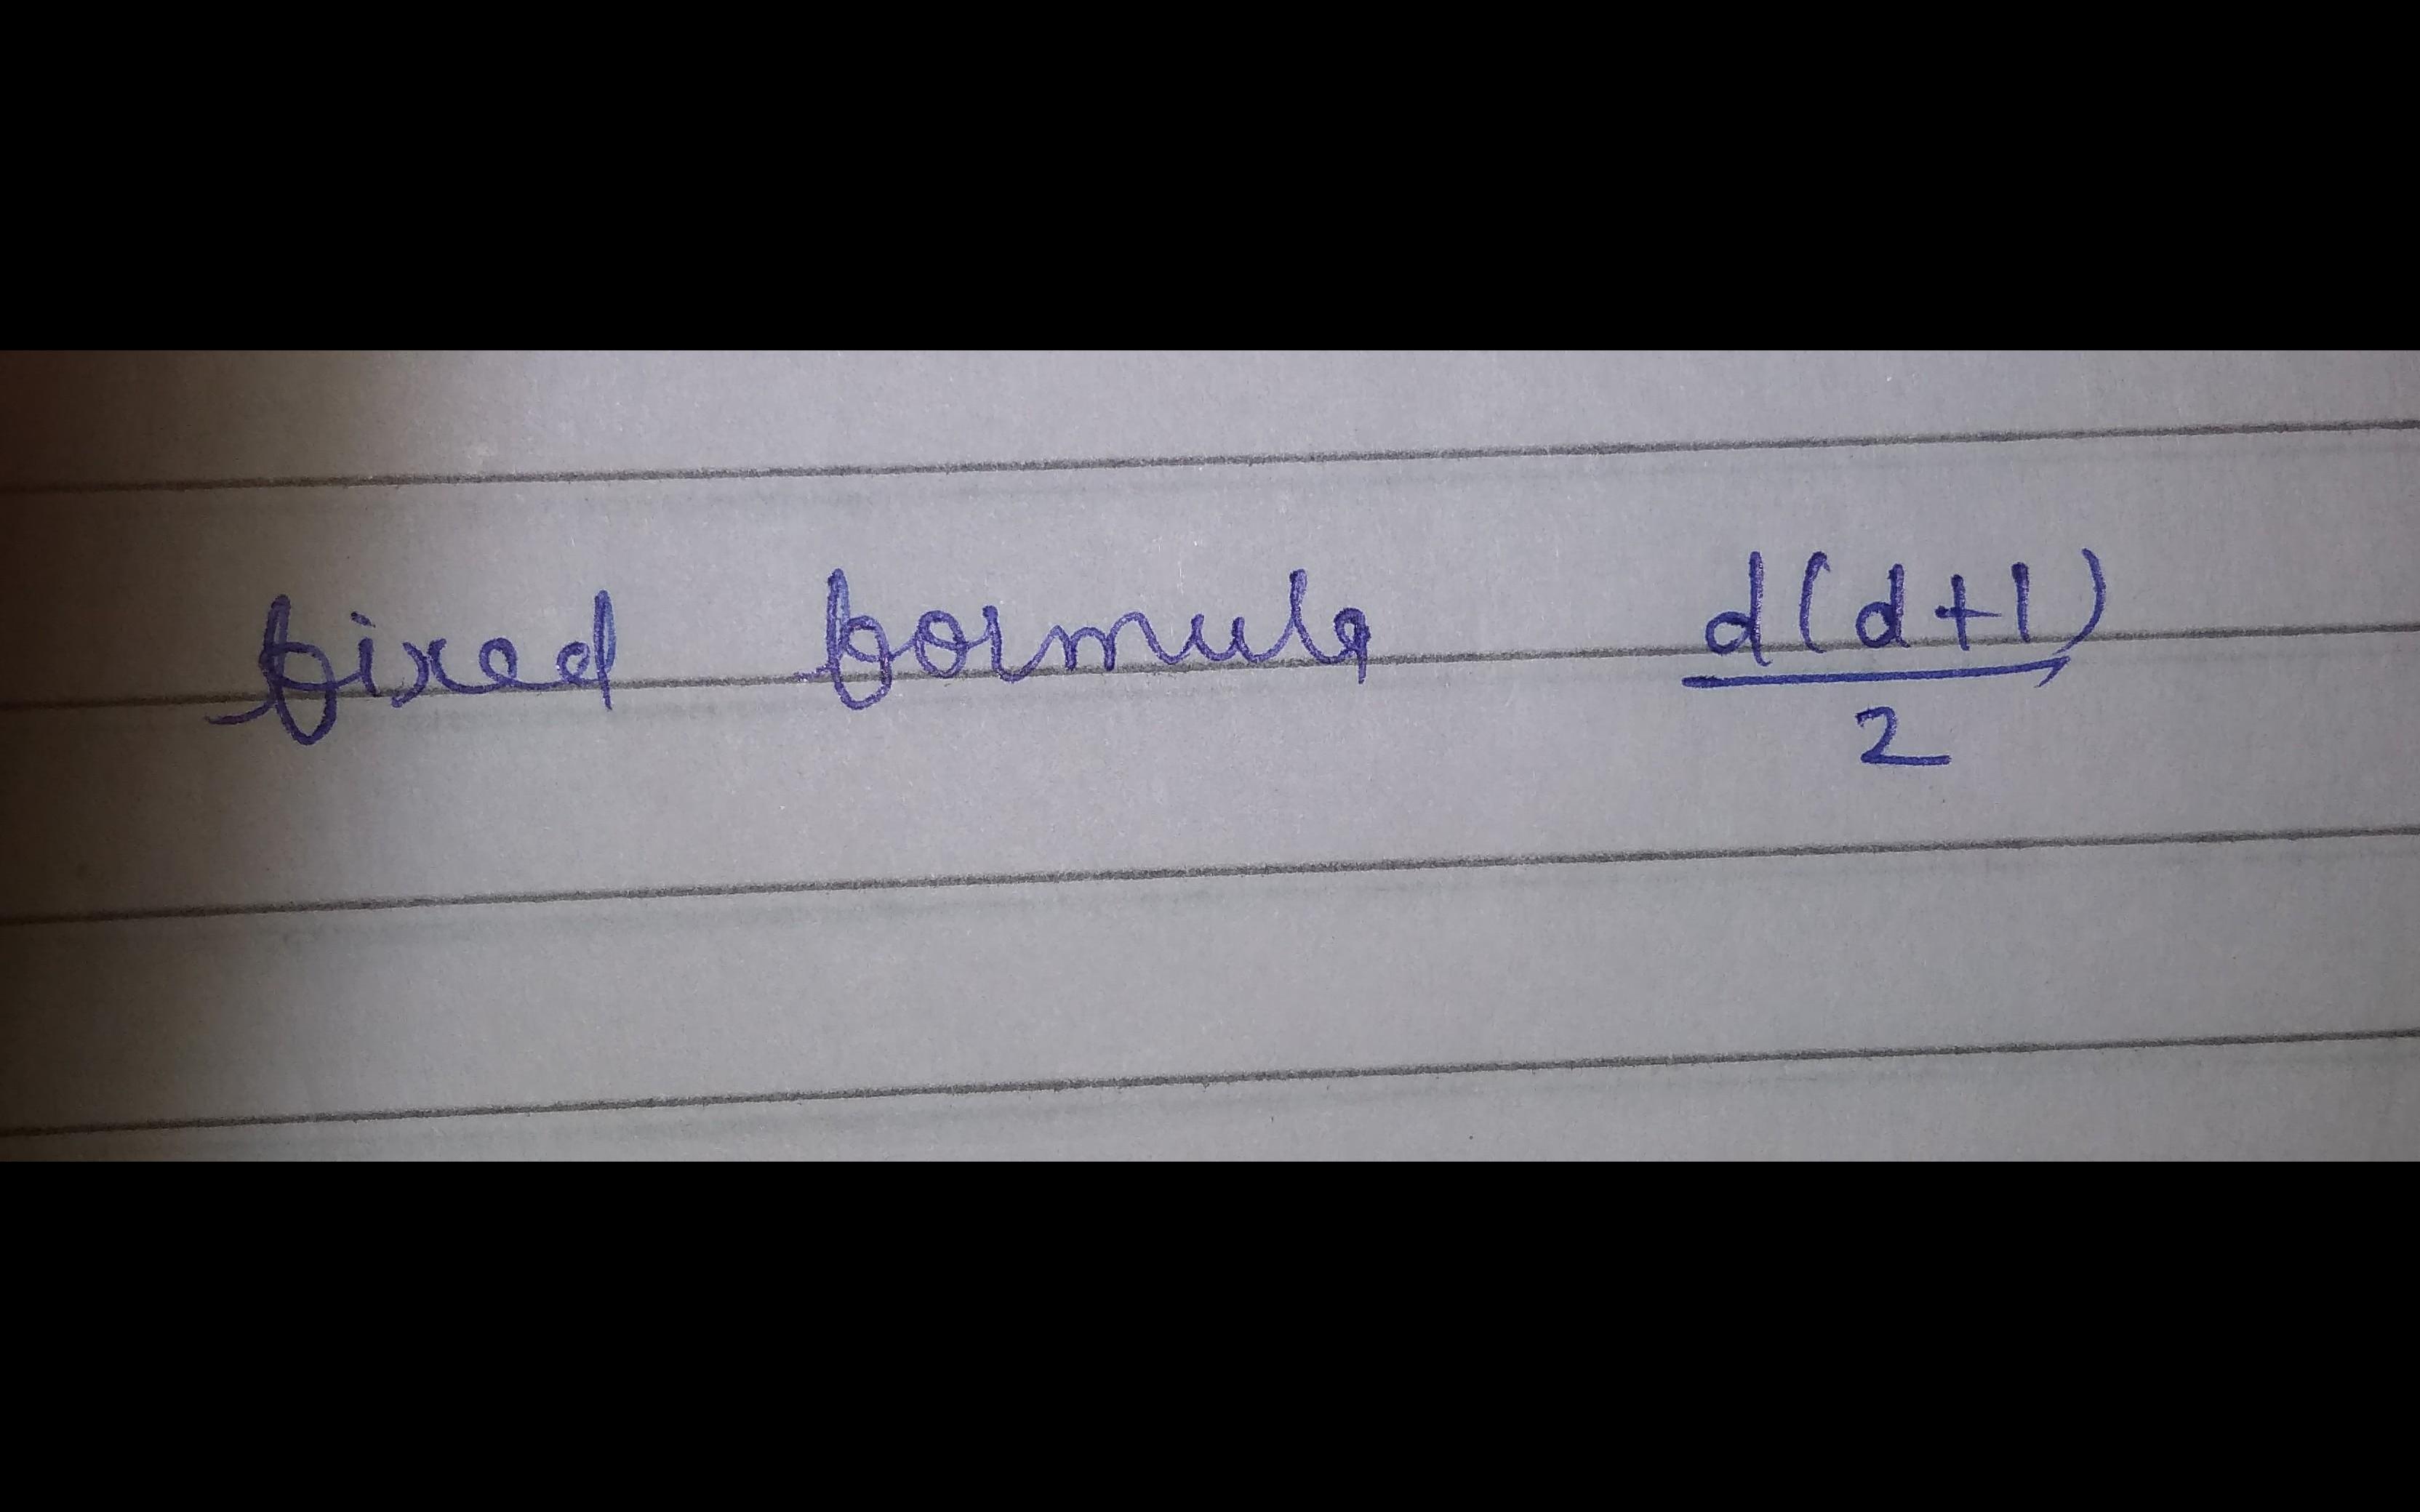 fixed formula d(d+1)/2